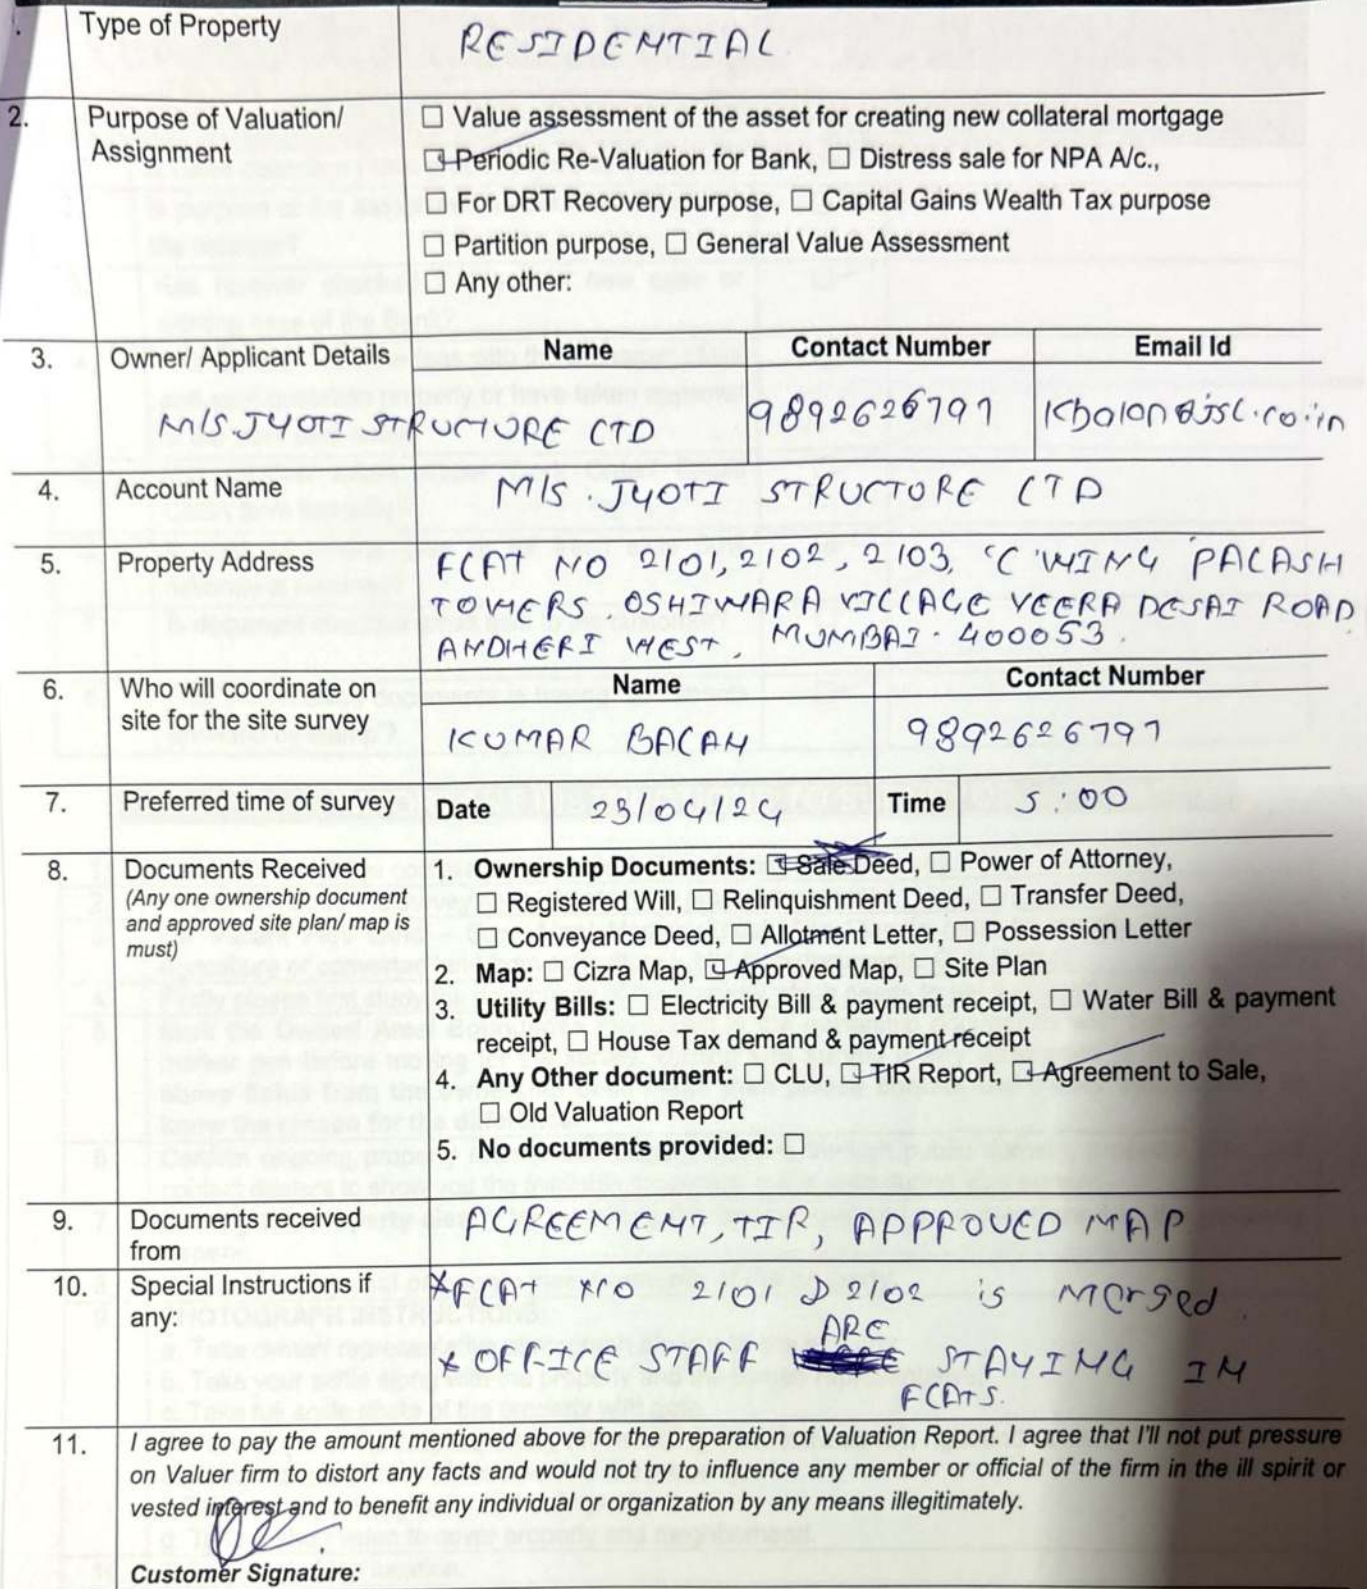 Type of Property RESIDENTIAL
2. Purpose of Valuation/ Assignment
☐ Value assessment of the asset for creating new collateral mortgage
☑ Periodic Re-Valuation for Bank, ☐ Distress sale for NPA A/c.,
☐ For DRT Recovery purpose, ☐ Capital Gains Wealth Tax purpose
☐ Partition purpose, ☐ General Value Assessment
☐ Any other:
3. Owner/ Applicant Details Name Contact Number Email Id
M/S. JYOTI STRUCTURE LTD 9892626797
4. Account Name M/S. JYOTI STRUCTURE LTD
5. Property Address FLAT NO 2101, 2102, 2103, 'C' WING PALASH
TOWERS OSHIWARA VILLAGE VEERA DESAI ROAD
ANDHERI WEST, MUMBAI - 400053.
6. Who will coordinate on site for the site survey Name Contact Number
KUMAR BALAN 9892626797
7. Preferred time of survey Date 23/04/24 Time 5:00
8. Documents Received
(Any one ownership document
and approved site plan/ map is
must)
1. Ownership Documents: ☑ Sale Deed, ☐ Power of Attorney,
☐ Registered Will, ☐ Relinquishment Deed, ☐ Transfer Deed,
☐ Conveyance Deed, ☐ Allotment Letter, ☐ Possession Letter
2. Map: ☐ Cizra Map, ☑ Approved Map, ☐ Site Plan
3. Utility Bills: ☐ Electricity Bill & payment receipt, ☐ Water Bill & payment
receipt, ☐ House Tax demand & payment receipt
4. Any Other document: ☐ CLU, ☑ TIR Report, ☑ Agreement to Sale,
☐ Old Valuation Report
5. No documents provided: ☐
9. Documents received from AGREEMENT, TIR, APPROVED MAP
10. Special Instructions if any:
*FLAT NO 2101 & 2102 is merged.
* OFFICE STAFF ARE STAYING IN
FLATS.
11. I agree to pay the amount mentioned above for the preparation of Valuation Report. I agree that I'll not put pressure
on Valuer firm to distort any facts and would not try to influence any member or official of the firm in the ill spirit or
vested interest and to benefit any individual or organization by any means illegitimately.
Customer Signature: